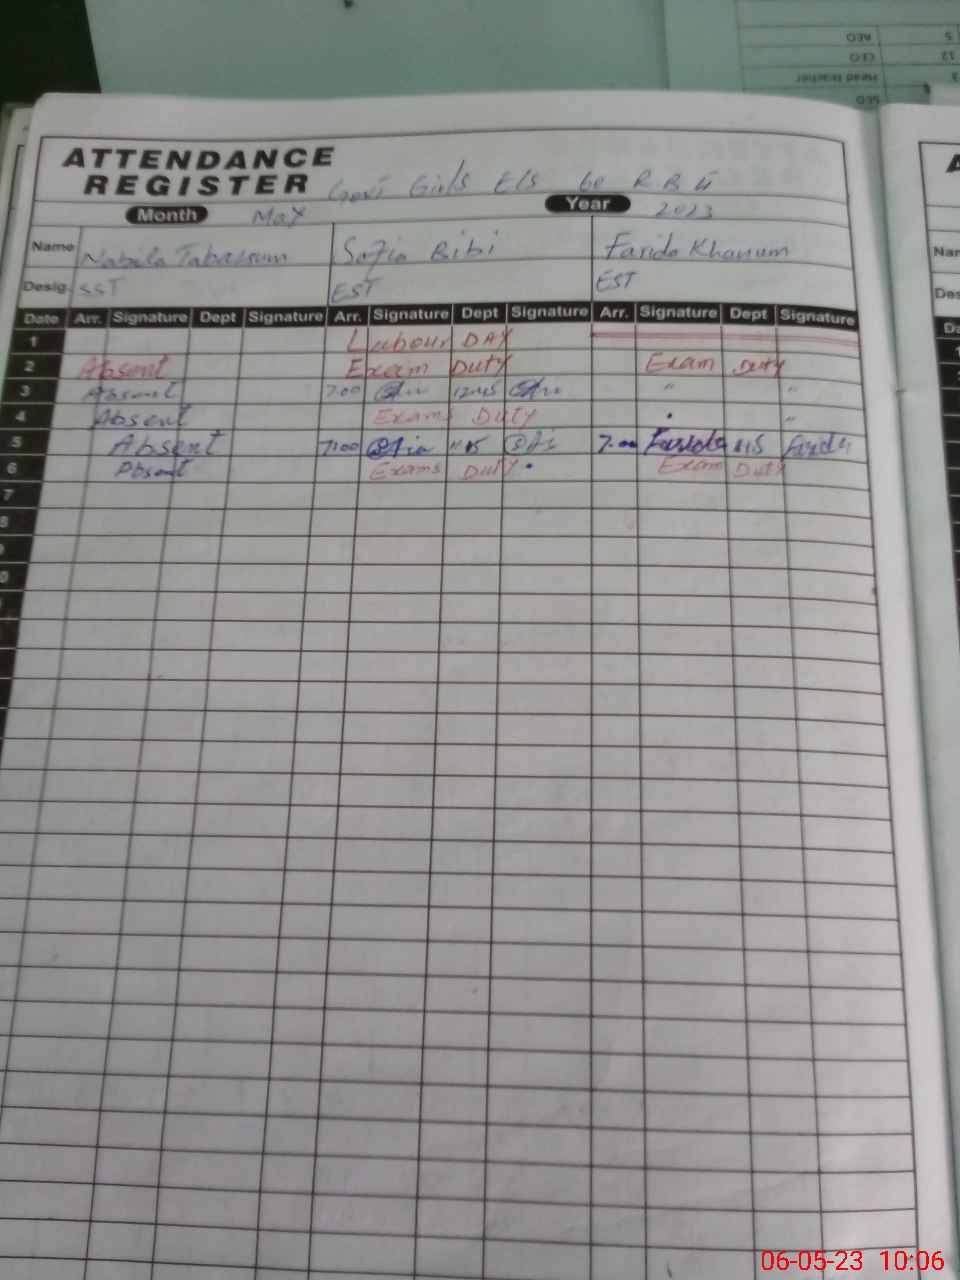 AEO 5
CEO 12
Head teacher 3
SEO
ATTENDANCE
REGISTER Govt Girls E/S 60 R B
Month May Year 2023
Name Nabila Tabassum Sofia Bibi Farida Khanum
Desig. SST EST EST
Date Arr. Signature Dept Signature Arr. Signature Dept Signature Arr. Signature Dept Signature
1 Labour DAY
2 Absent Exam Duty Exam Duty
3 Absent 7:00 " "
4 Absent Exams Duty "
5 Absent 7:00 7:00 Farida Farida
6 Absent Exams Duty Exam Duty
7
8
9
0
06-05-23 10:06